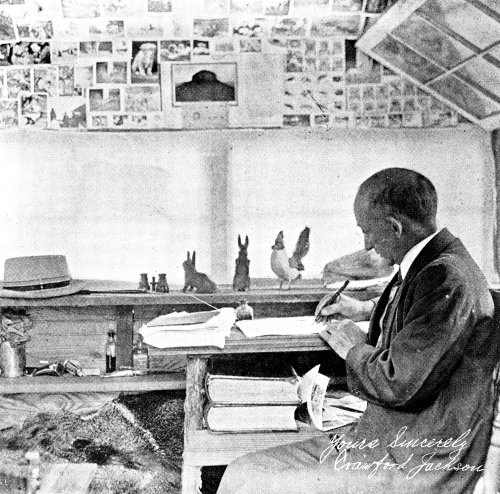 Yours Sincerely
Crawford Jackson